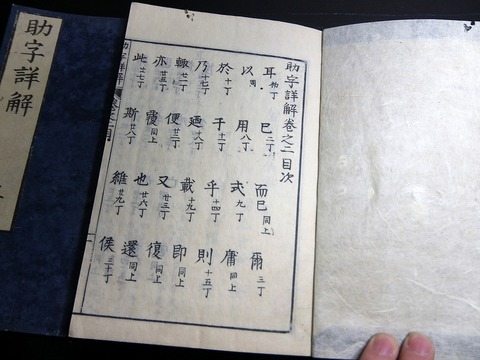 助字詳解卷之二目次
耳 初丁 已 二丁 而已 同上 爾 三丁
以 用 八丁 式 九丁 庸 同上
於 十丁 于 乎 十四丁 則 十五丁
乃 十七丁 廼 十八丁 載 十九丁 即 同上
輙 廿一丁 便 廿二丁 又 廿三丁 復 同上
亦 廿五丁 覆 同上 也 廿六丁 還 同上
此 廿七丁 斯 廿八丁 維 廿九丁 侯 三十丁
助字詳解
助字詳解